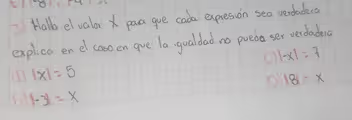 Halla el valor X para que cada expresión sea verdadera
explica en el caso en que la igualdad no pueda ser verdadera
|x| = 5
|-x| = 7
|-3| = x
|8| = x